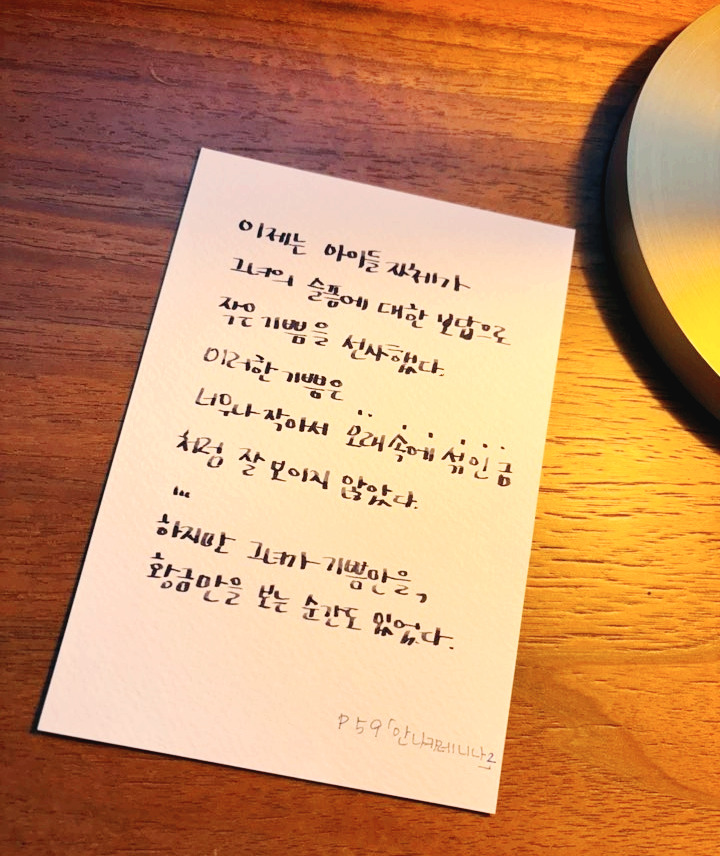 이제는 아이들 자체가
그녀의 슬픔에 대한 보답으로
작은 기쁨을 선사했다.
이러한 기쁨은
너무나 작아서 모래 속에 섞인 금
처럼 잘 보이지 않았다.
...
하지만 그녀가 기쁨만을,
황금만을 보는 순간도 있었다.
P 59 「안나카레니나」2